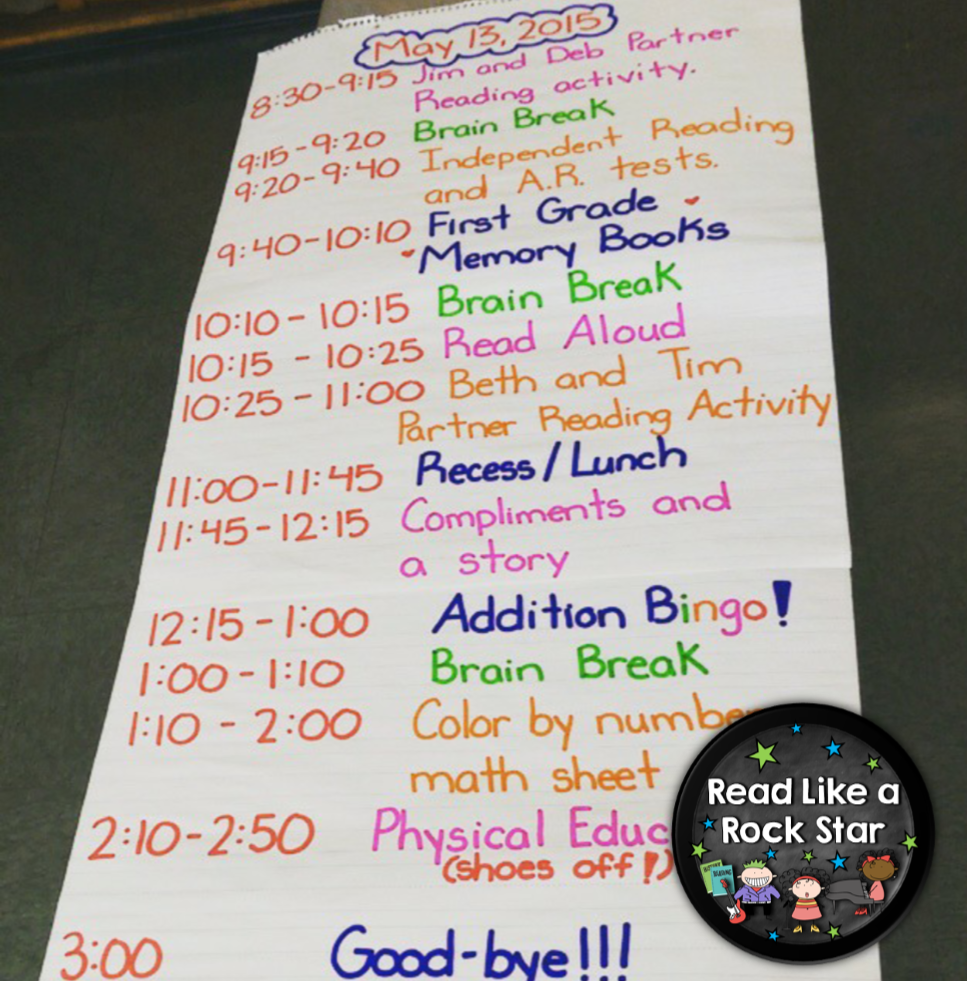 May 13, 2015
8:30-9:15 Jim and Deb Partner
Reading activity.
9:15-9:20 Brain Break
9:20-9:40 Independent Reading
and A.R. tests.
9:40-10:10 First Grade
Memory Books
10:10-10:15 Brain Break
10:15 - 10:25 Read Aloud
10:25-11:00 Beth and Tim
Partner Reading Activity
11:00-11:45 Recess/Lunch
11:45-12:15 Compliments and
a story
12:15-1:00 Addition Bingo!
1:00-1:10 Brain Break
1:10 - 2:00 Color by number
math sheet
2:10-2:50 Physical Educ
(shoes off!)
3:00 Good-bye!!!
Read Like a
Rock Star